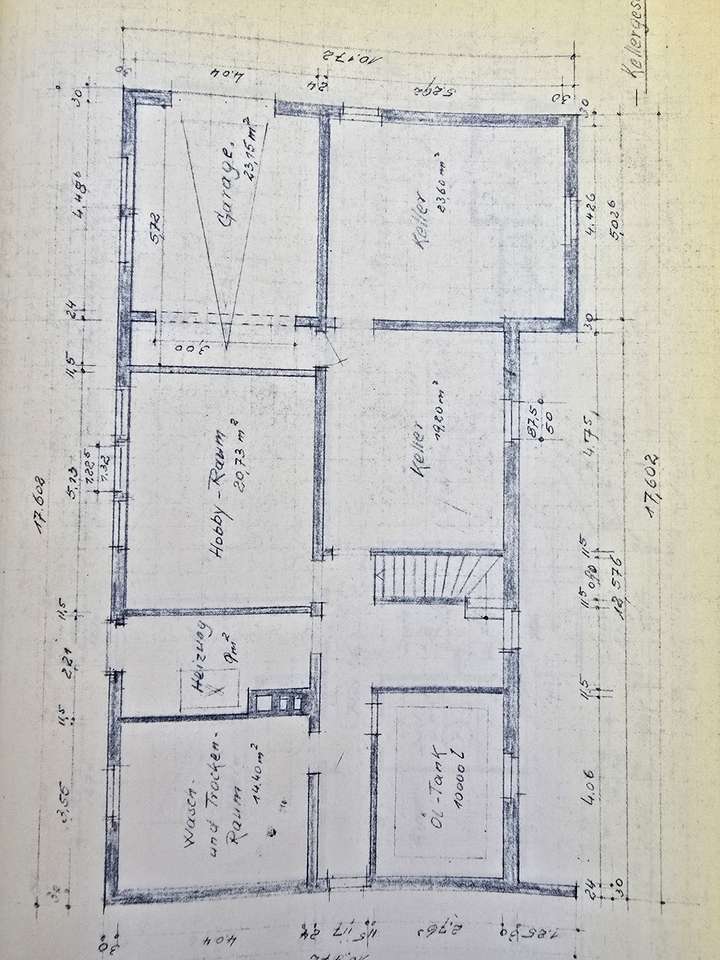 - Kellergesc
10.172
4.04
24
5.892
30
30
30
4.486
5,72
24
11,5
Garage.
23,15 m²
Keller
23,60 m²
4.426
5,026
30
3,00
Hobby-Raum
20,73 m²
Keller
19,20 m²
87,5
50
4.175
17.602
5,13
1.225
1.32
17,602
11,5
2,21
11,5
Heizung
9 m²
11,5
11,5
12,576
11,5
Wasch-
und Trocken-
Raum
14,40 m²
Öl-Tank
10000 l
4.06
3,55
24
30
30
4.04
24
1,17
11,5
2,76
30
1.25